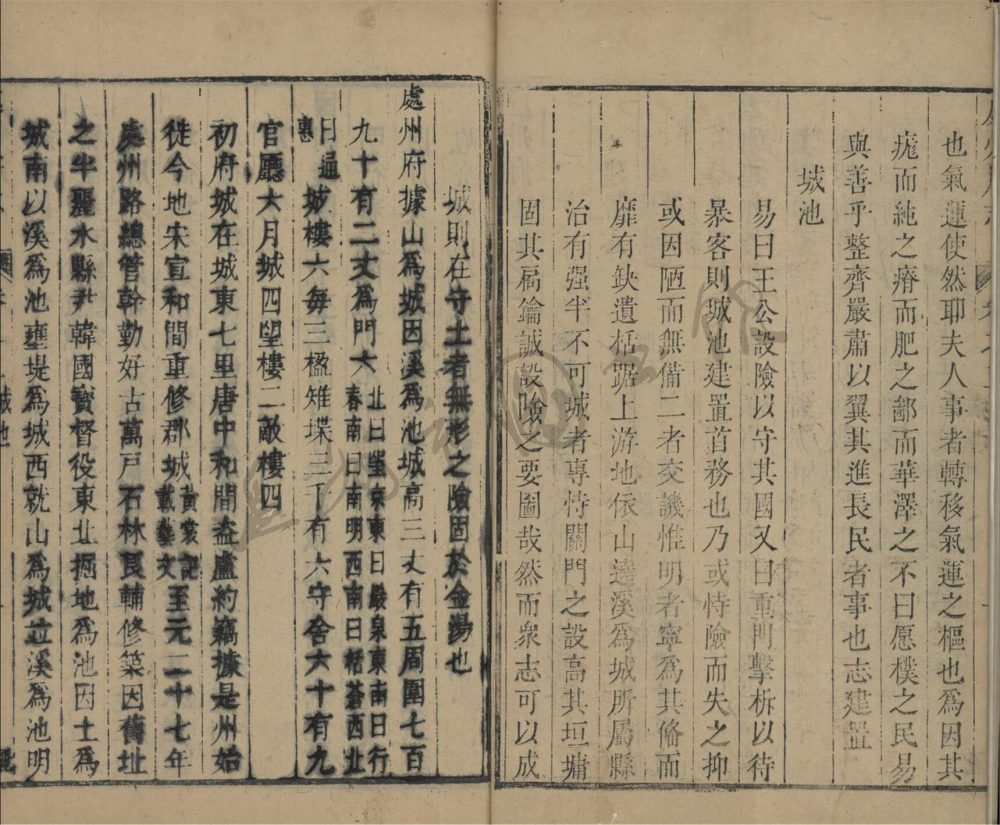 也氣運使然耶夫人事者轉移氣運之樞也為因其
痝而純之瘠而肥之鄙而華澤之不曰愿樸之民易
與善乎整齊嚴肅以翼其進長民者事也志建置
城池
易曰王公設險以守其國又曰重門擊柝以待
暴客則城池建置首務也乃或恃險而失之抑
或因陋而無備二者交譏惟明者寧為其備而
靡有缺遺栝踞上游地依山遶溪為城所屬縣
治有强半不可城者専恃關門之設高其垣墉
固其扃鑰誠設險之要圖哉然而衆志可以成
城則在守土者無形之險固於金湯也
處州府據山為城因溪為池城高三丈有五周圍七百
九十有二丈為門六北曰望京東曰巖泉東南曰行
春南曰南明西南曰栝蒼西北
曰通
惠城樓六每三楹雉堞三千有六守舍六十有九
官廳六月城四望樓二敵樓四
初府城在城東七里唐中和間盜盧約竊據是州始
徙今地宋宣和間重修郡城黃裳記
載藝文至元二十七年
處州路總管斡勤好古萬戸石林良輔修築因舊址
之半麗水縣尹韓國寳督役東北掘地為池因土為
城南以溪為池壅堤為城西就山為城並溪為池明